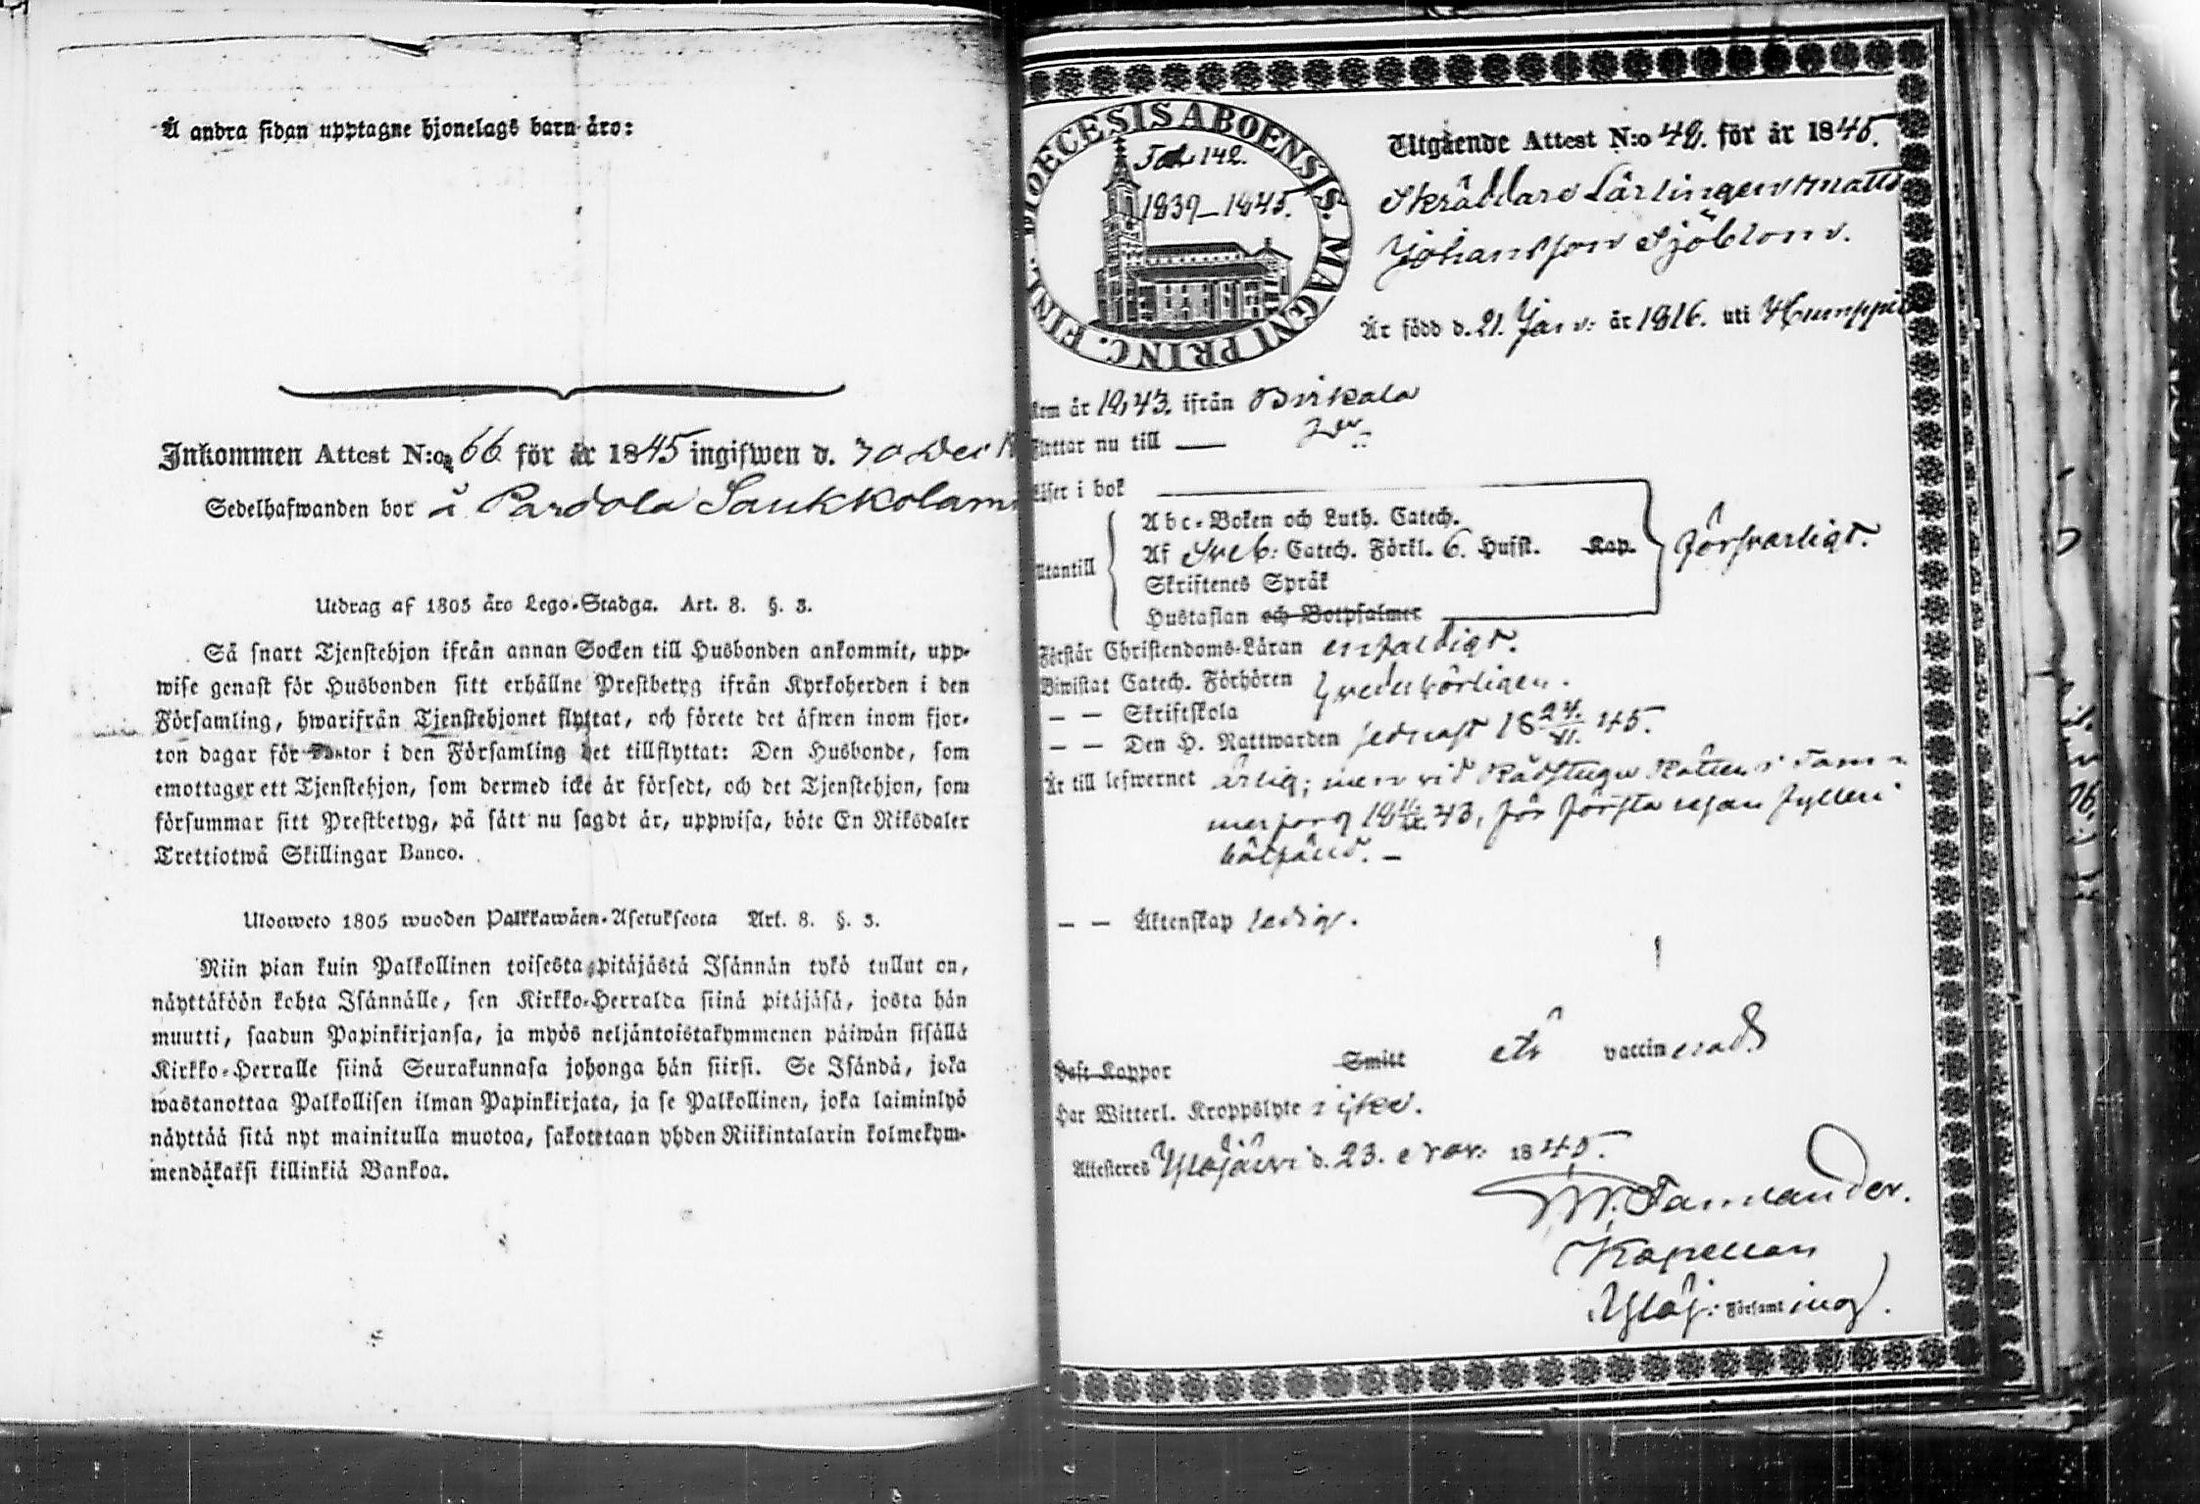 Å andra sidan upptagne hjonelags barn äro:
Inkommen Attest N:o 66 för år 1845 ingifwen d. 30 Dec
Sedelhafwanden bor å Pardola Saukkola
Utdrag af 1805 års Lego-Stadga. Art. 8. §. 3.
Så snart Tjenstehjon ifrån annan Socken till Husbonden ankommit, upp-
wise genast för Husbonden sitt erhållne Prestbetyg ifrån Kyrkoherden i den
Församling, hwarifrån Tjenstehjonet flyttat, och förete det äfwen inom fjor-
ton dagar för Pastor i den Församling det tillflyttat: Den Husbonde, som
emottager ett Tjenstehjon, som dermed icke är försedt, och det Tjenstehjon, som
försummar sitt Prestbetyg, på sätt nu sagdt är, uppwisa, böte En Riksdaler
Trettiotwå Skillingar Banco.
Ulosweto 1805 wuoden Palkkawäen-Asetuksesta Art. 8. §. 3.
Niin pian kuin Palkollinen toisesta pitäjästä Isännän tykö tullut on,
näyttäköön kohta Isännälle, sen Kirkko-Herralda siinä pitäjäsä, josta hän
muutti, saadun Papinkirjansa, ja myös neljäntoistakymmenen päiwän sisällä
Kirkko-Herralle siinä Seurakunnasa johonga hän siirsi. Se Isändä, joka
wastanottaa Palkollisen ilman Papinkirjata, ja se Palkollinen, joka laiminlyö
näyttää sitä nyt mainitulla muotoa, sakotetaan yhden Riikintalarin kolmekym-
mendäkaksi killinkiä Bankoa.
DIOECESIS ABOENSIS. MAGNI PRINC. FINL.
Fol 142.
1839-1845.
Utgående Attest N:o 48. för år 1845.
Skräddare Lärlingen Matts
Johansson Sjöblom.
Är född d. 21. Janv: år 1816. uti Humppila
Kom år 1843. ifrån Birkala
Flyttar nu till —
Läser i bok
Utantill
Abc-Boken och Luth. Catech.
Af Sveb: Catech. Förkl. 6. Hufst. Kap.
Skriftenes Språk
Hustaflan och Botpsalmer
försvarligt.
Förstår Christendoms-Läran enfaldigt.
Biwistat Catech. Förhören
— — Skriftskola
behörligen.
— — Den H. Nattwarden sednast 18 24/XI. 45.
Är till lefwernet ärlig; men vid Rådstugu Rätten i Tam-
merfors 43, för första resan fylleri
bötfäld. —
— — Äktenskap ledig.
Haft Koppor Smitt är vaccinerad.
Har Witterl. Kroppslyte: icke.
Attesteres Ylöjärvi d. 23. Nov: 1845.
Tamlander.
Kapellan
Ylöj: Församling.